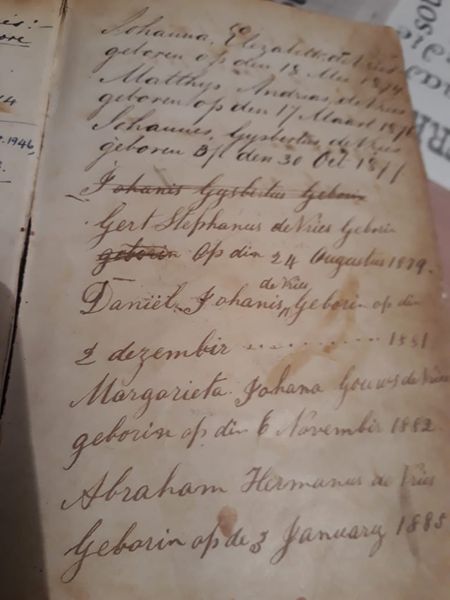 1946,
Johanna, Elizabeth de Vries
geboren op den 18 Mei 1874
Matthys Andreas de Vries
geboren op den 17 Maart 1876
Johannes, Gysbertus de Vries
geboren op den 30 Oct 1877
Johanis Gysbertus Geborin
Gert Stephanus de Vries Geborin
geborin Op din 24 Augustus 1879.
de Vries
Daniël Johanis, Geborin op din
2 dezembir .......... 1881
Margarieta Johana Gouws de Vries
geborin op din 6 Novembir 1882.
Abraham Hermanus de Vries
Geborin op de 3 January 1885